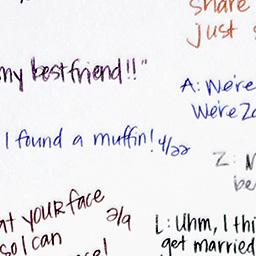 share
just s
my bestfriend!!"
A: We're
We're Zo
I found a muffin! 4/22
Z: N
be
at your face
so I can
2/9
L: Uhm, I thi
get married